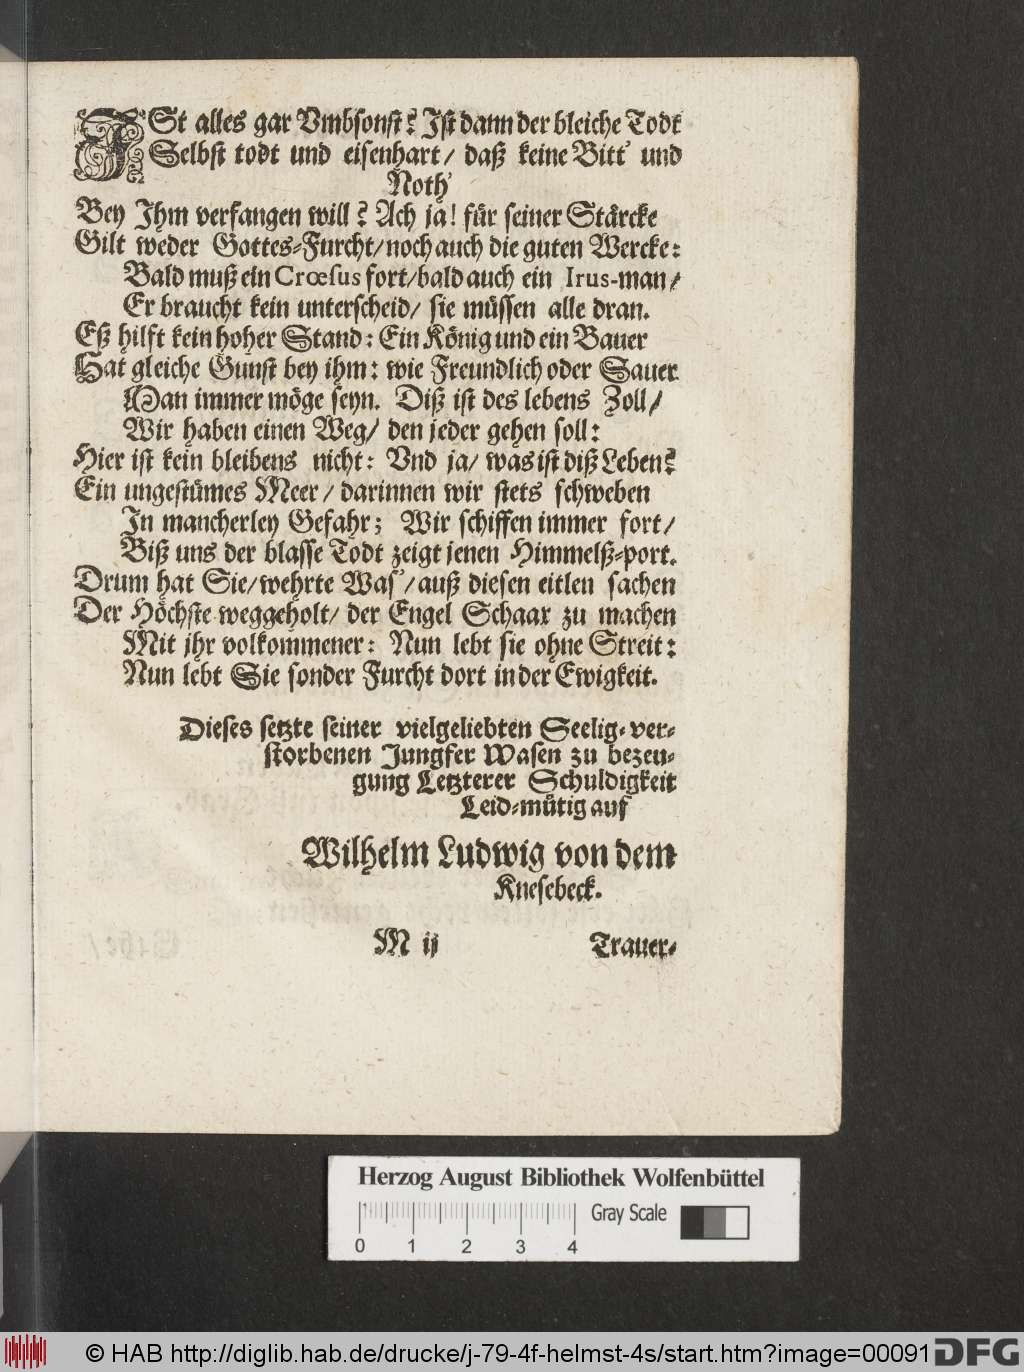 ISt alles gar Vmbsonst? Ist dann der bleiche Todt
Selbst todt und eisenhart/ daß keine Bitt' und
Noth'
Bey Ihm verfangen will? Ach ja! für seiner Stärcke
Gilt weder Gottes-Furcht/ noch auch die guten Wercke:
Bald muß ein Crœsus fort/ bald auch ein Irus-man/
Er braucht kein unterscheid/ sie müssen alle dran.
Eß hilft kein hoher Stand: Ein König und ein Bauer
Hat gleiche Gunst bey ihm: wie Freundlich oder Sauer
Man immer möge seyn. Diß ist des lebens Zoll/
Wir haben einen Weg/ den jeder gehen soll:
Hier ist kein bleibens nicht: Vnd ja/ was ist diß Leben?
Ein ungestümes Meer/ darinnen wir stets schweben
In mancherley Gefahr; Wir schiffen immer fort/
Biß uns der blasse Todt zeigt jenen Himmelß-port.
Drum hat Sie/ wehrte Was'/ auß diesen eitlen sachen
Der Höchste weggeholt/ der Engel Schaar zu machen
Mit jhr volkommener: Nun lebt sie ohne Streit:
Nun lebt Sie sonder Furcht dort in der Ewigkeit.
Dieses setzte seiner vielgeliebten Seelig-ver-
storbenen Jungfer Wasen zu bezeu-
gung Letzterer Schuldigkeit
Leid-mütig auf
Wilhelm Ludwig von dem
Knesebeck.
M ij Trauer-
Herzog August Bibliothek Wolfenbüttel
Gray Scale
0 1 2 3 4
© HAB http://diglib.hab.de/drucke/j-79-4f-helmst-4s/start.htm?image=00091 DFG